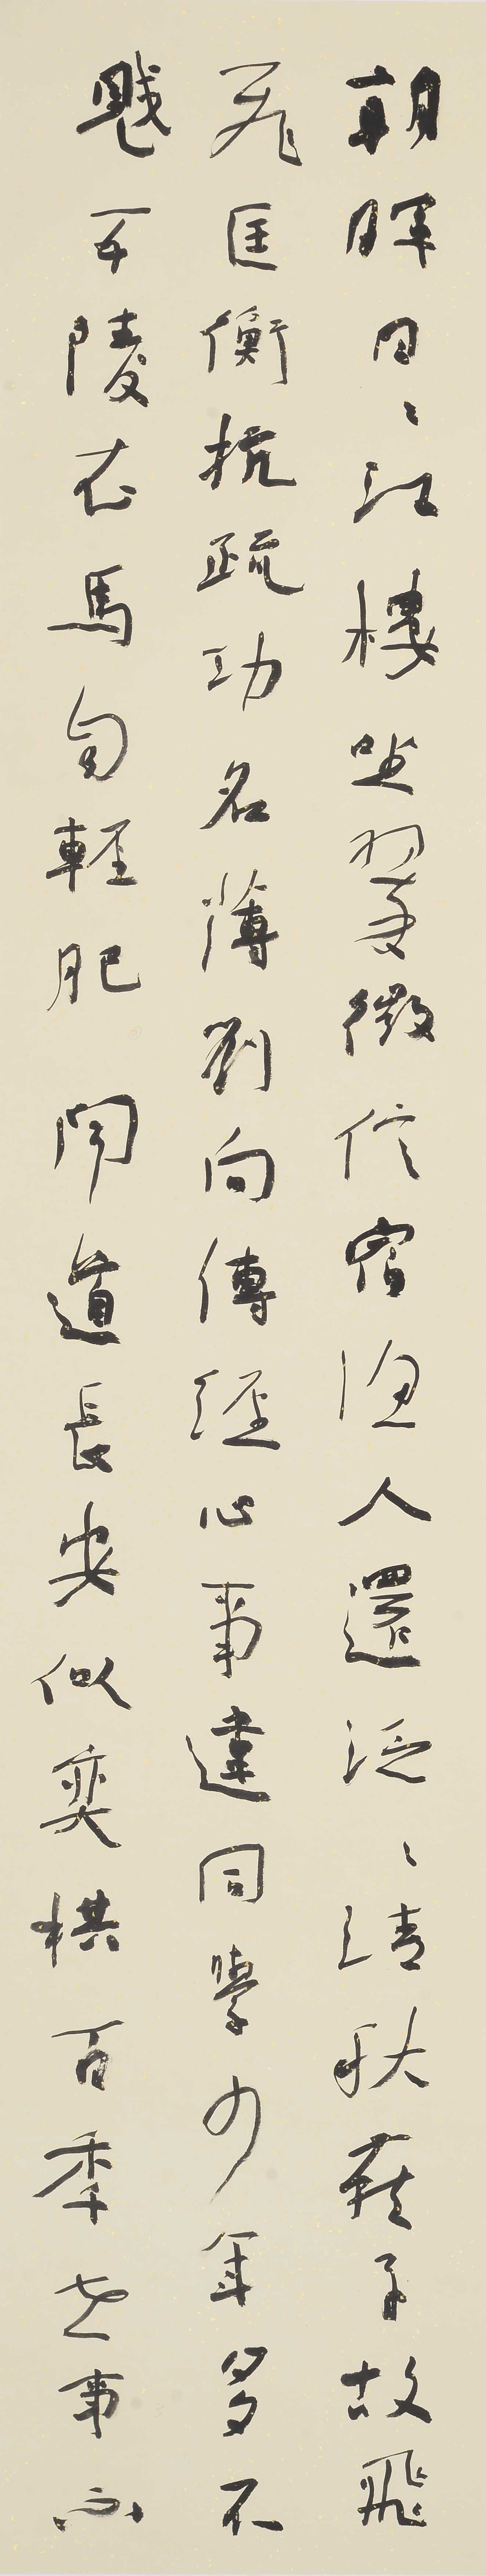 朝暉日〻江樓坐翠微信宿漁人還泛〻清秋燕子故飛
飛匡衡抗疏功名薄劉向傳經心事違同學少年多不
賤五陵衣馬自輕肥 聞道長安似奕棋百秊世事不